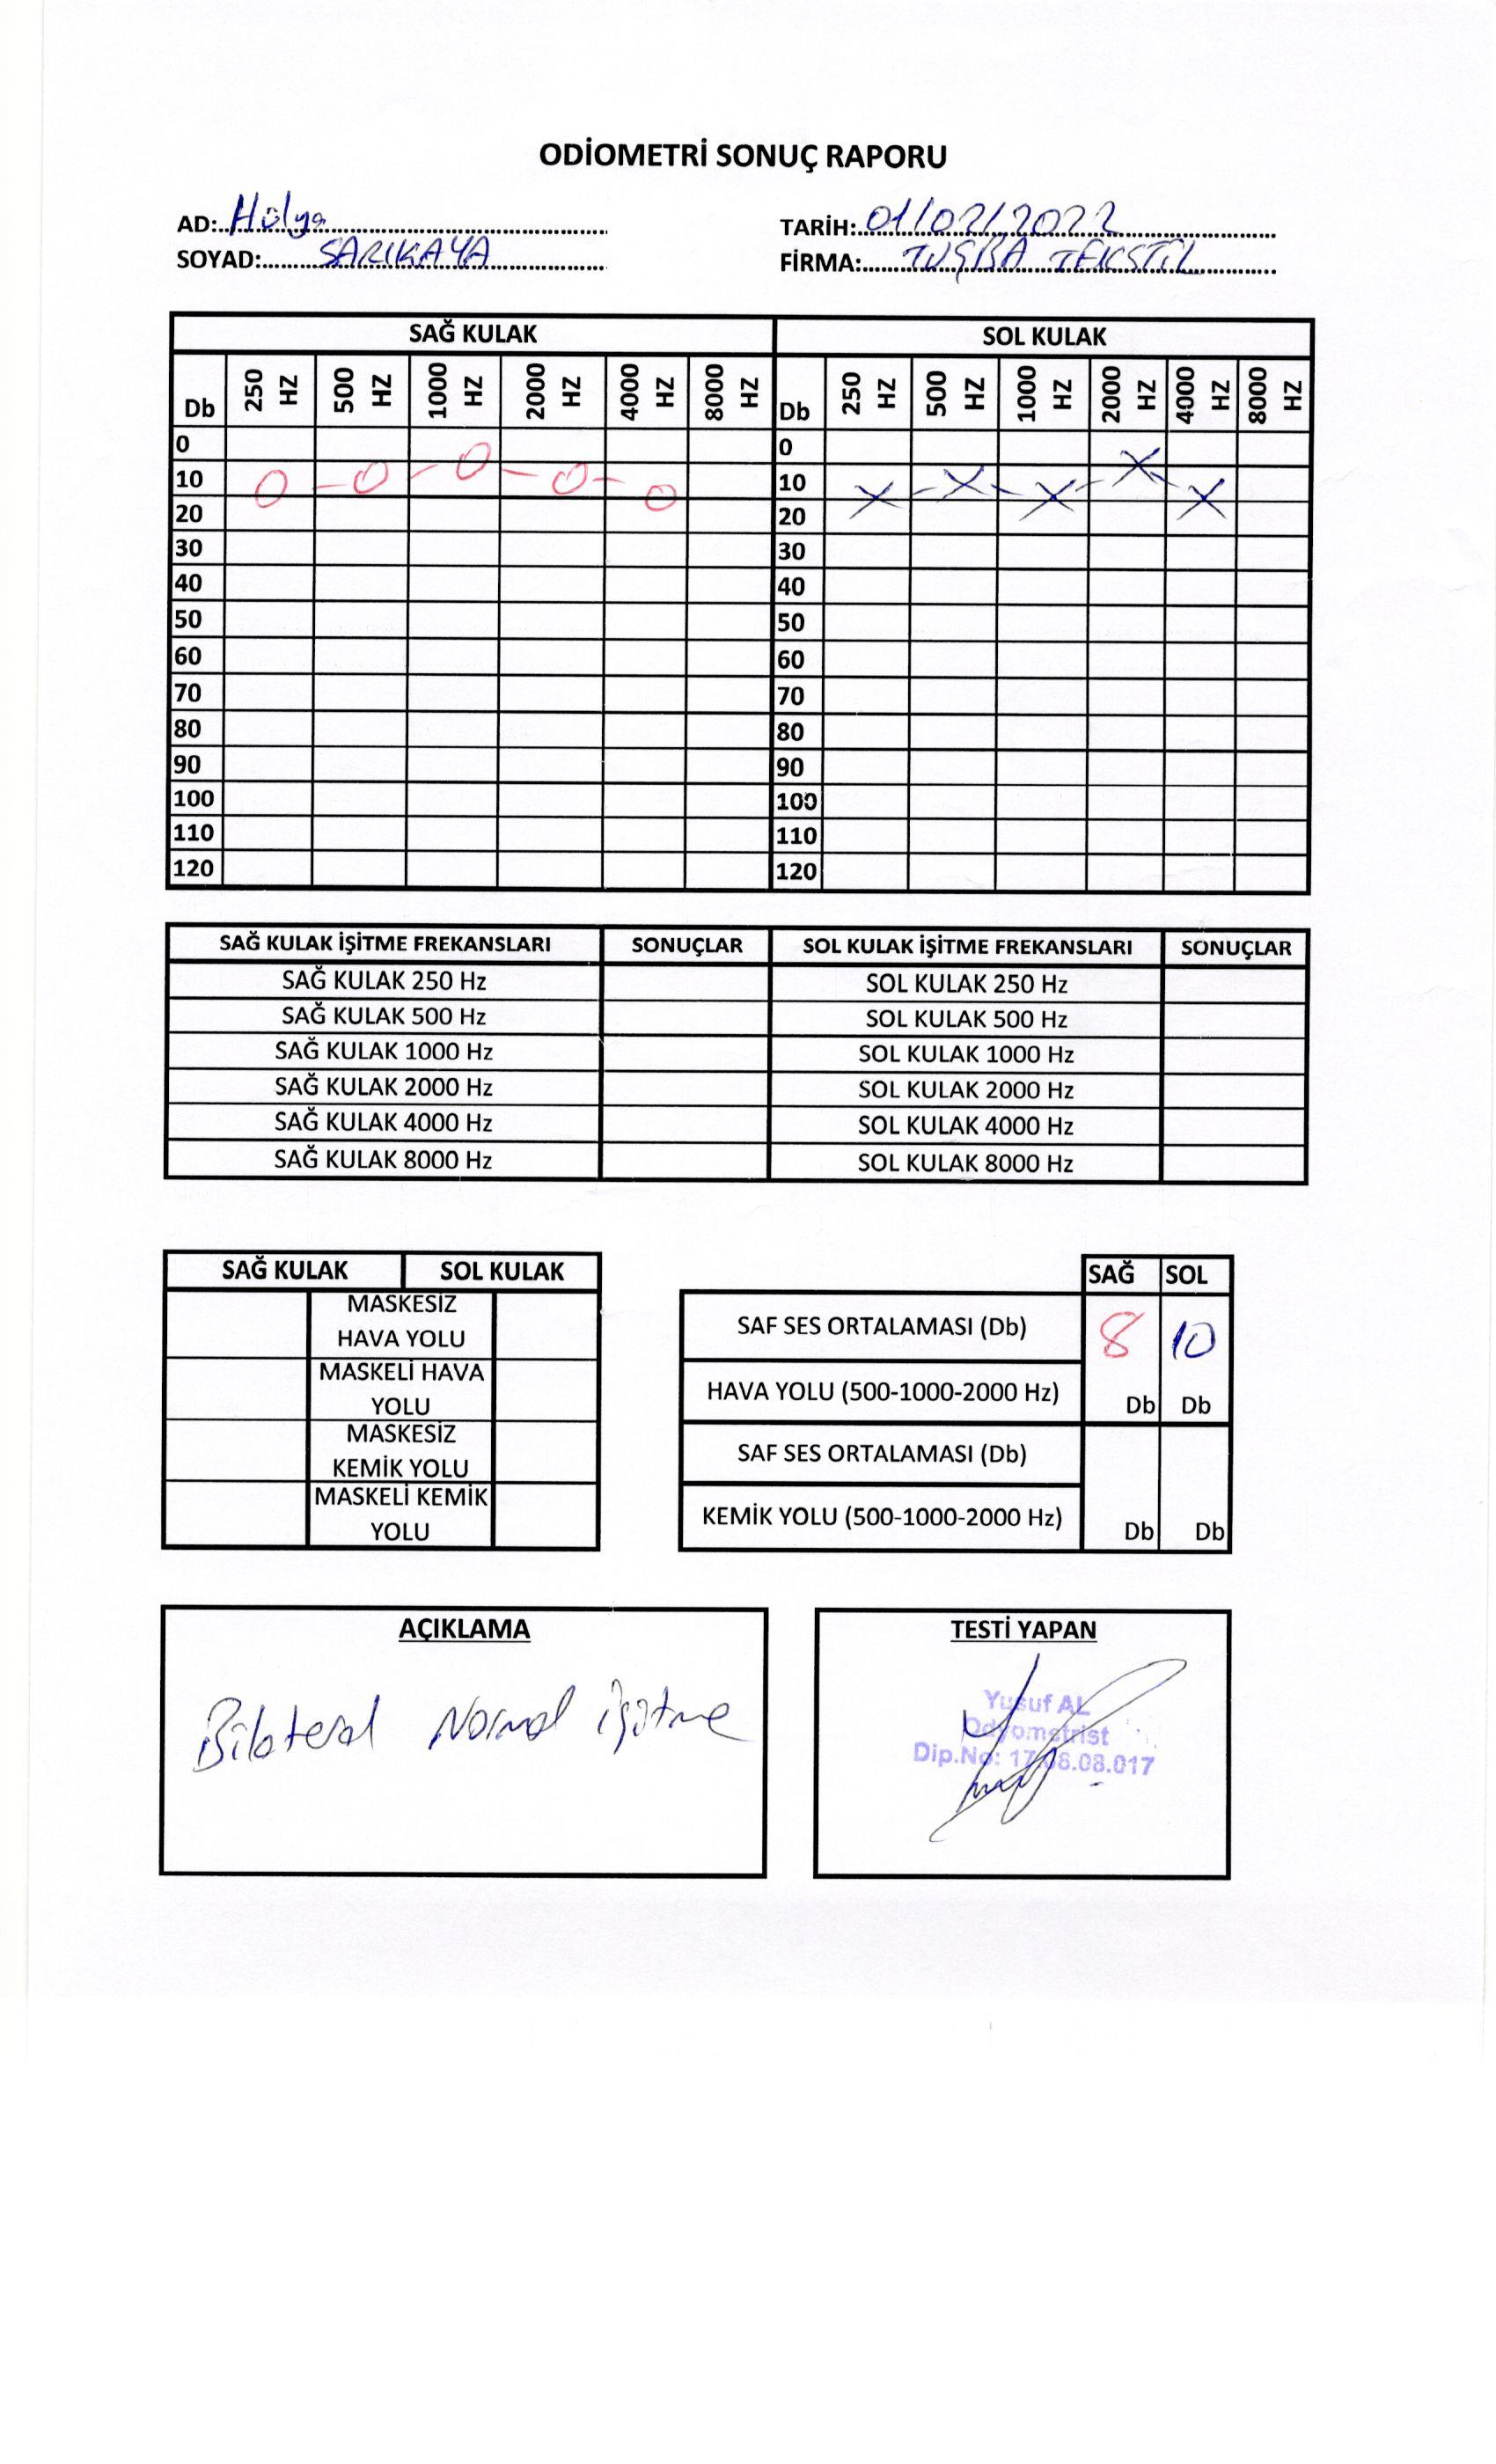 ODİOMETRİ SONUÇ RAPORU
AD: Hülya TARİH: 01/02/2022
SOYAD: SARIKAYA FİRMA: TUŞBA TEKSTİL
SAĞ KULAK SOL KULAK
Db 250 HZ 500 HZ 1000 HZ 2000 HZ 4000 HZ 8000 HZ Db 250 HZ 500 HZ 1000 HZ 2000 HZ 4000 HZ 8000 HZ
0 0
10 10
20 20
30 30
40 40
50 50
60 60
70 70
80 80
90 90
100 100
110 110
120 120
SAĞ KULAK İŞİTME FREKANSLARI SONUÇLAR SOL KULAK İŞİTME FREKANSLARI SONUÇLAR
SAĞ KULAK 250 Hz SOL KULAK 250 Hz
SAĞ KULAK 500 Hz SOL KULAK 500 Hz
SAĞ KULAK 1000 Hz SOL KULAK 1000 Hz
SAĞ KULAK 2000 Hz SOL KULAK 2000 Hz
SAĞ KULAK 4000 Hz SOL KULAK 4000 Hz
SAĞ KULAK 8000 Hz SOL KULAK 8000 Hz
SAĞ KULAK SOL KULAK
MASKESİZ
HAVA YOLU
MASKELİ HAVA
YOLU
MASKESİZ
KEMİK YOLU
MASKELİ KEMİK
YOLU
SAĞ SOL
SAF SES ORTALAMASI (Db) 8 10
HAVA YOLU (500-1000-2000 Hz) Db Db
SAF SES ORTALAMASI (Db)
KEMİK YOLU (500-1000-2000 Hz) Db Db
AÇIKLAMA
Bilateral Normal işitme
TESTİ YAPAN
Yusuf AL
Odyometrist
Dip.No: 17.08.08.017